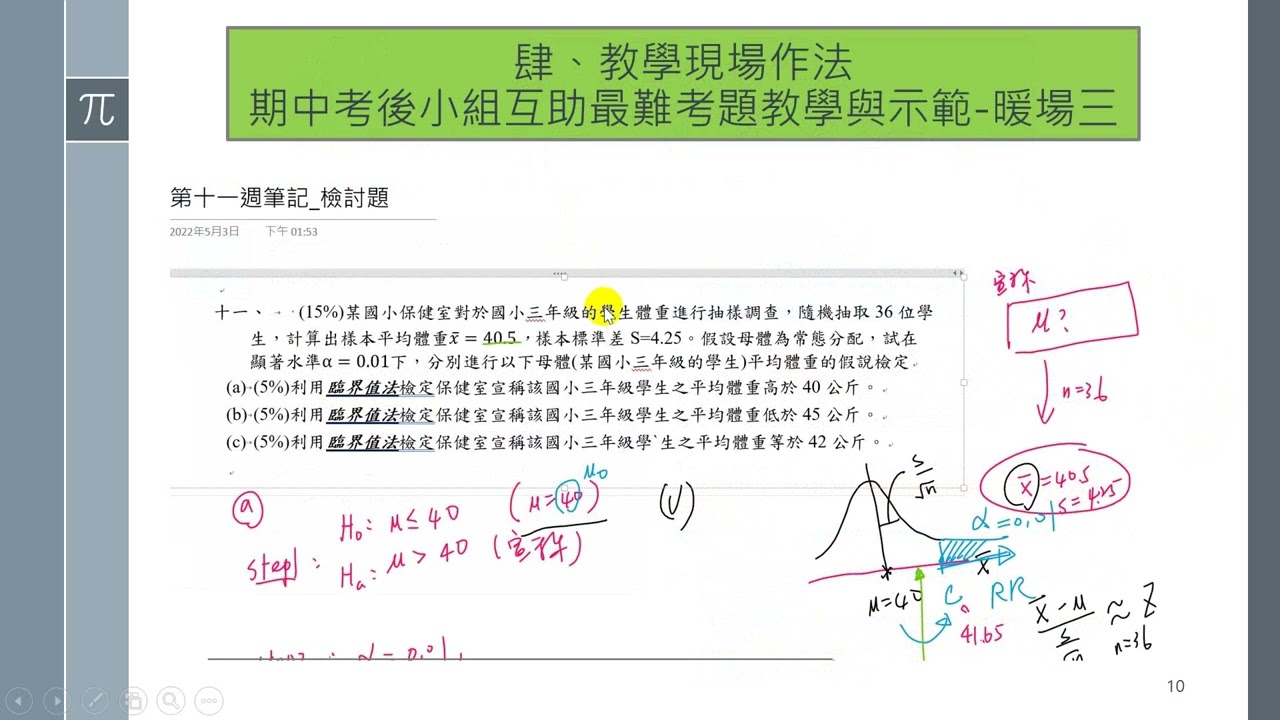 肆、教學現場作法
期中考後小組互助最難考題教學與示範-暖場三
π
第十一週筆記_檢討題
2022年5月3日 下午 01:53
十一、 (15%)某國小保健室對於國小三年級的學生體重進行抽樣調查，隨機抽取 36 位學
生，計算出樣本平均體重x̄ = 40.5，樣本標準差 S=4.25。假設母體為常態分配，試在
顯著水準α = 0.01下，分別進行以下母體(某國小三年級的學生)平均體重的假說檢定
(a) (5%)利用臨界值法檢定保健室宣稱該國小三年級學生之平均體重高於 40 公斤。
(b) (5%)利用臨界值法檢定保健室宣稱該國小三年級學生之平均體重低於 45 公斤。
(c) (5%)利用臨界值法檢定保健室宣稱該國小三年級學`生之平均體重等於 42 公斤。
宣稱
μ?
n=36
x̄=40.5
s=4.25
ⓐ
step1:
H₀: μ≤40
(μ=40)
μ₀
Hₐ: μ>40 (宣稱)
(√)
s/√n
α=0.01
x̄
μ=40
C
RR
41.65
x̄-μ
s/√n
≈ Z
n=36
α=0.01,
10